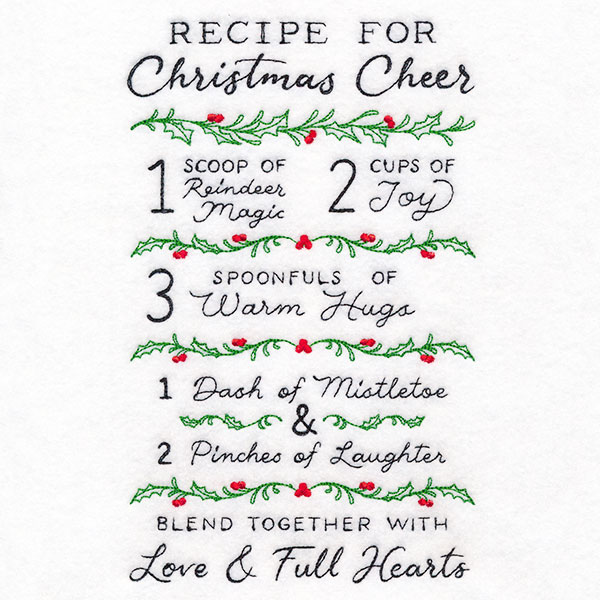 RECIPE FOR
Christmas Cheer
1 SCOOP OF Reindeer Magic
2 CUPS OF Joy
3 SPOONFULS OF Warm Hugs
1 Dash of Mistletoe
&
2 Pinches of Laughter
BLEND TOGETHER WITH
Love & Full Hearts